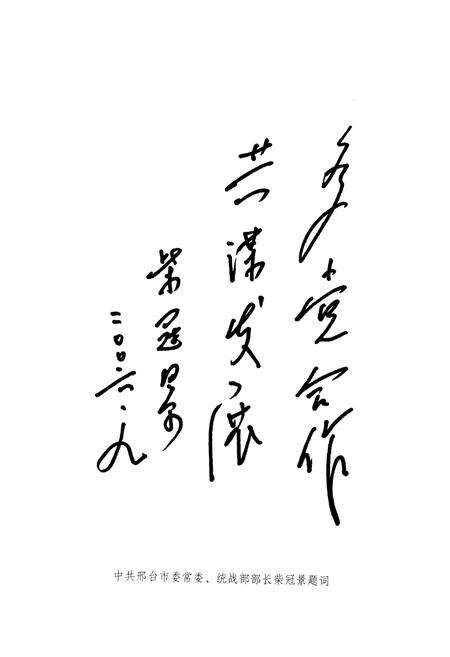 多党合作
共谋发展
柴冠景
二〇〇六·九
中共邢台市委常委、统战部部长柴冠景题词